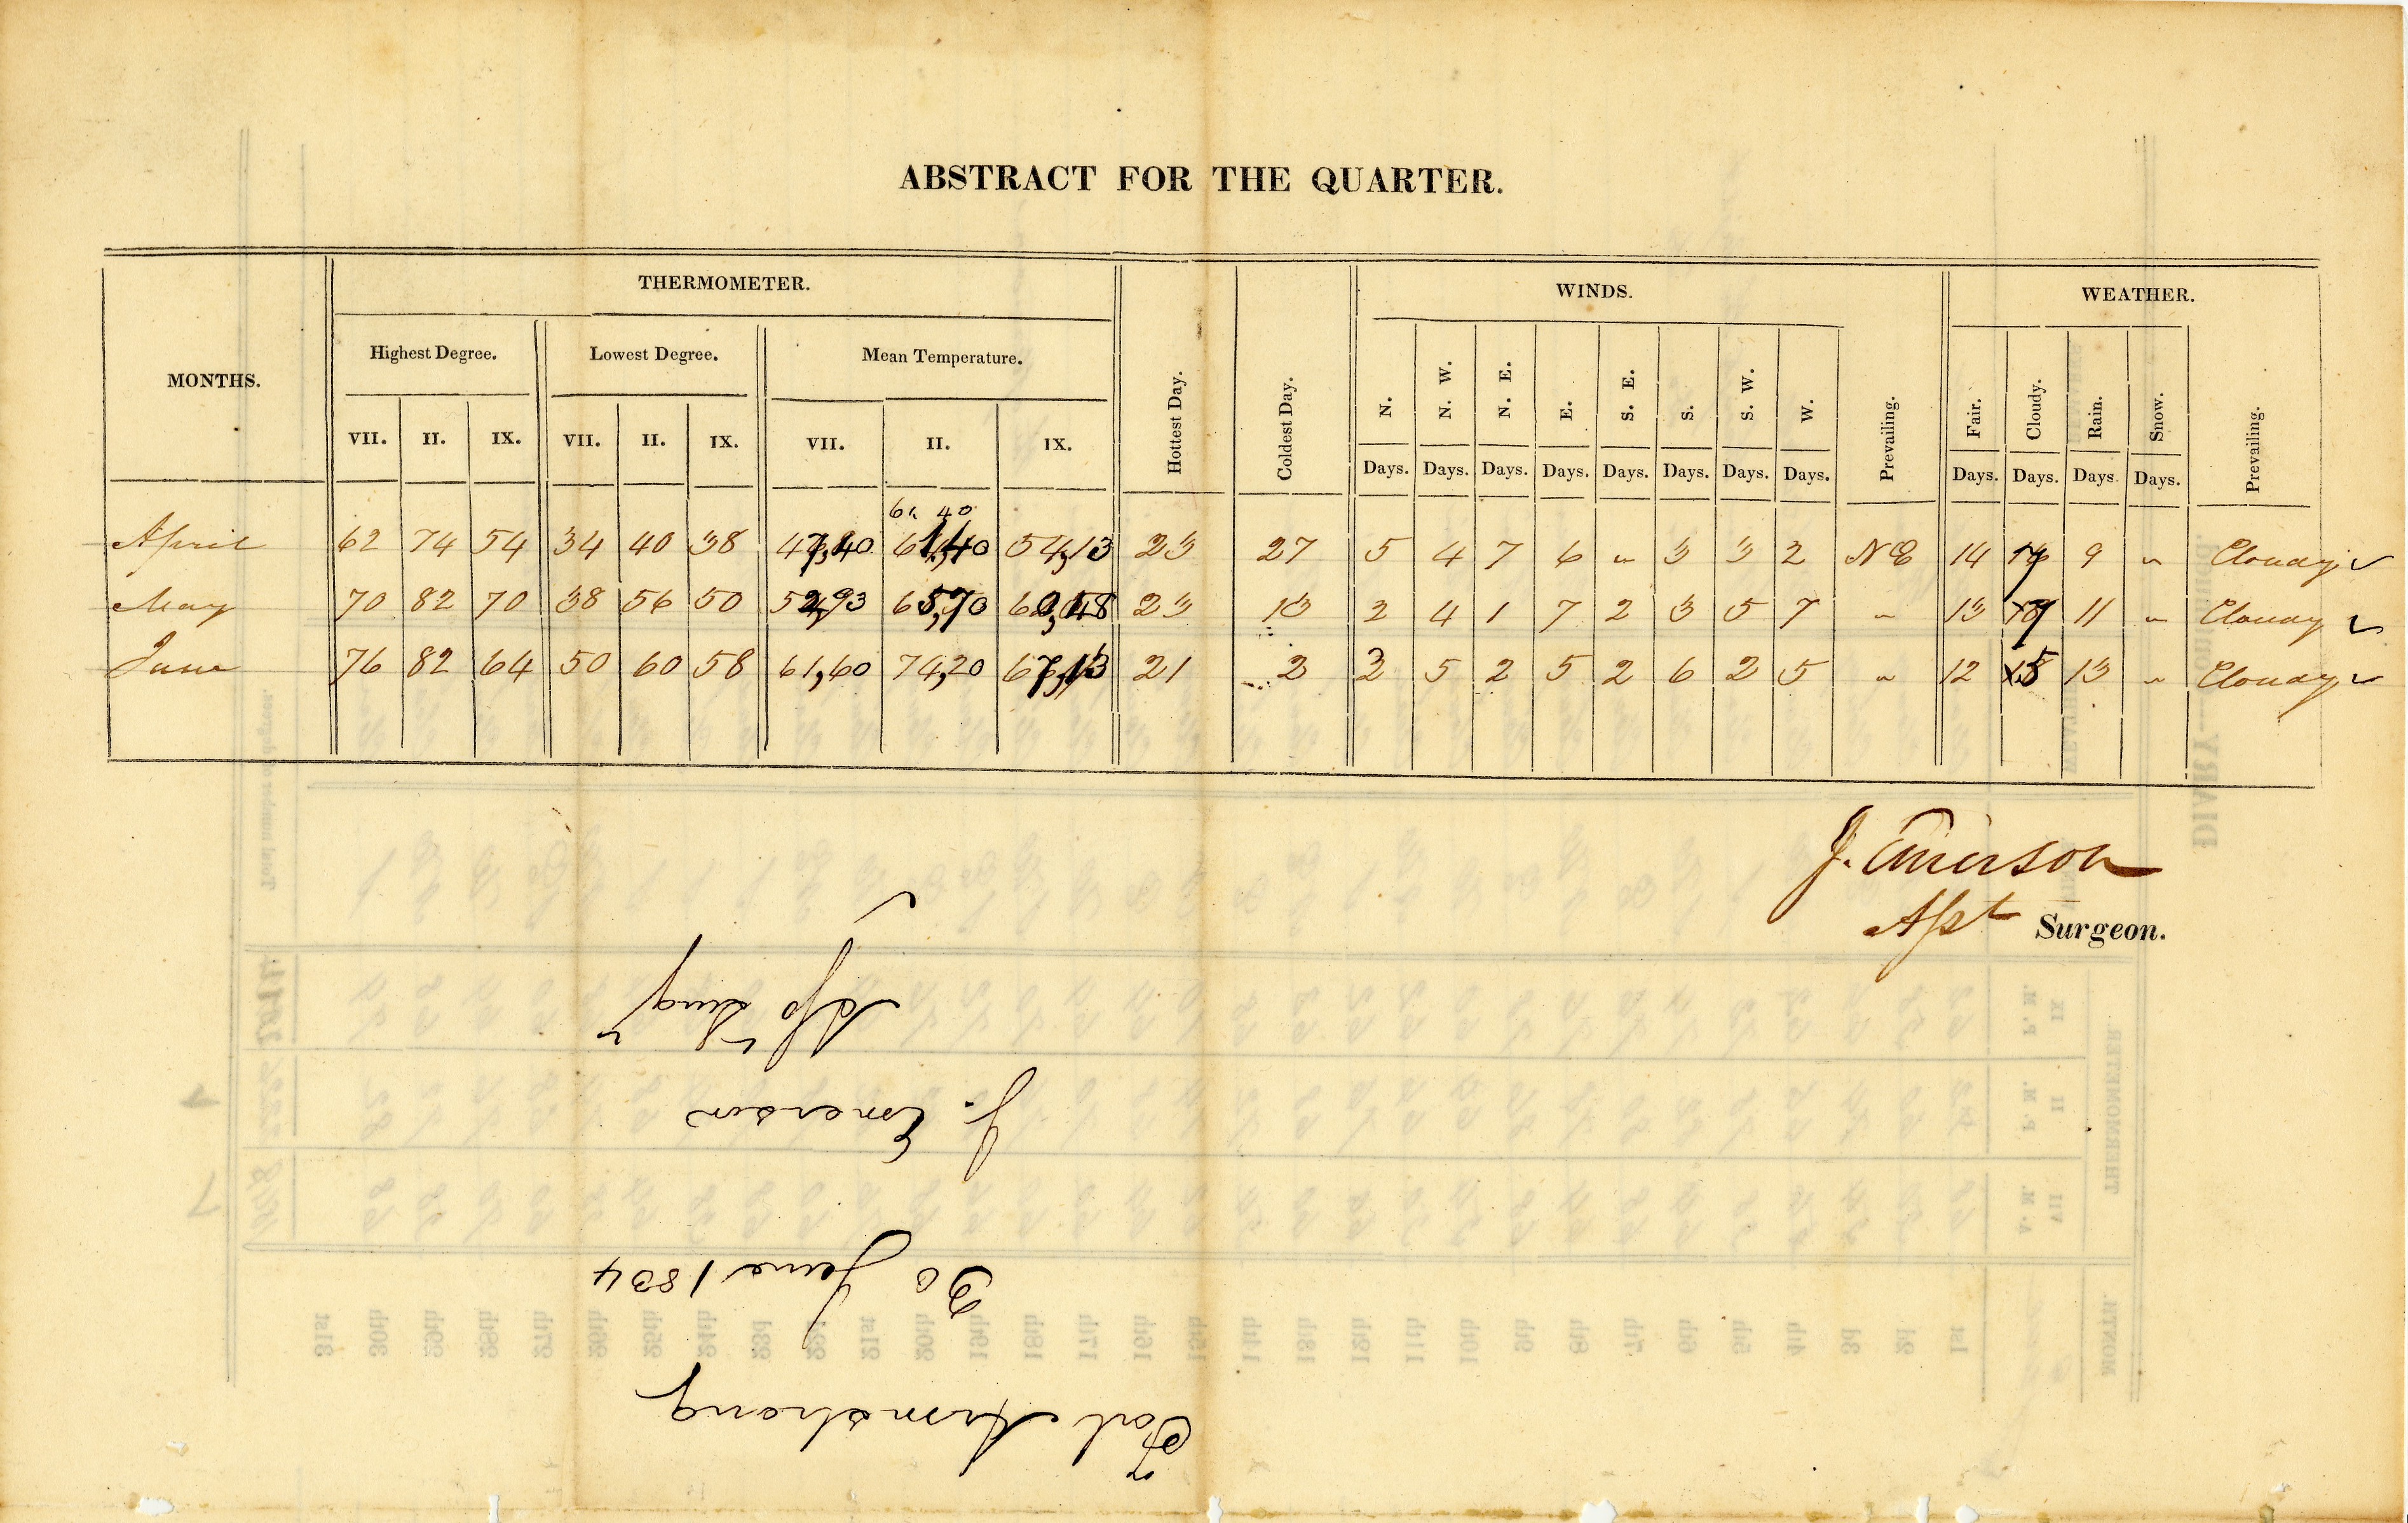 ABSTRACT FOR THE QUARTER.
MONTHS. THERMOMETER. Hottest Day. Coldest Day. WINDS. WEATHER.
Highest Degree. Lowest Degree. Mean Temperature. N. N. W. N. E. E. S. E. S. S. W. W. Prevailing. Fair. Cloudy. Rain. Snow. Prevailing.
VII. II. IX. VII. II. IX. VII. II. IX. Days. Days. Days. Days. Days. Days. Days. Days. Days. Days. Days. Days.
61, 40
April 62 74 54 34 40 38 47,40 61,40 54,13 23 27 5 4 7 6 " 3 3 2 NE 14 9 " Cloudy ✓
May 70 82 70 38 56 50 52,93 65,70 23 13 2 4 1 7 2 3 5 7 " 13 11 " Cloudy ✓
June 76 82 64 50 60 58 61,60 74,20 67,13 21 2 5 2 5 2 6 2 5 " 12 5 13 " Cloudy ✓
J. Emerson
Asst Surgeon.
Fort Armstrong
30 June 1834
J. Emerson
As Surg